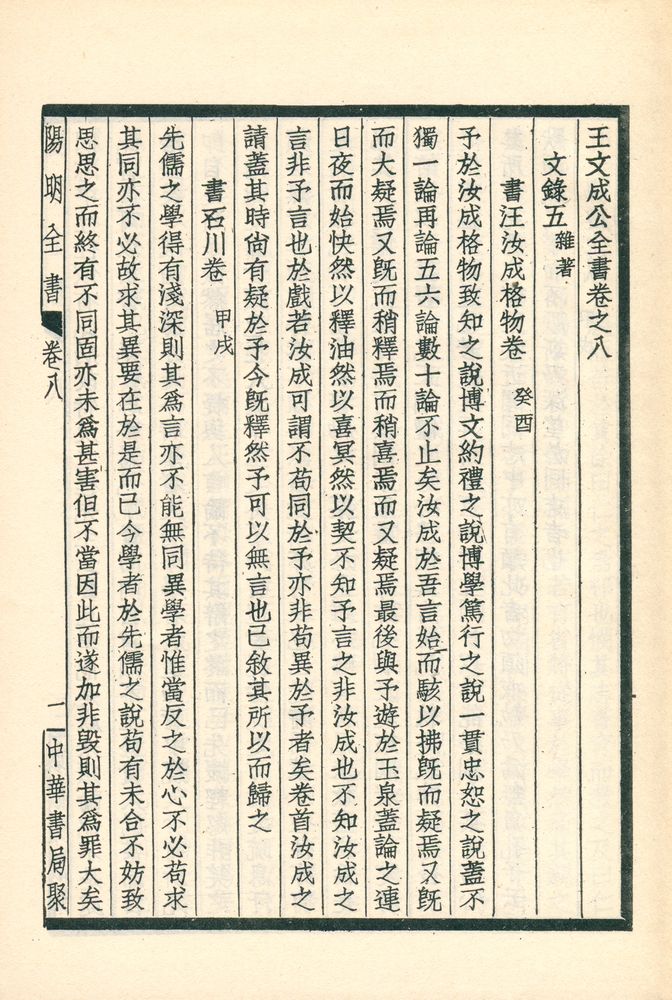 王文成公全書卷之八
文錄五 雜著
書汪汝成格物卷 癸酉
予於汝成格物致知之說博文約禮之說博學篤行之說一貫忠恕之說蓋不
獨一論再論五六論數十論不止矣汝成於吾言始而駭以拂旣而疑焉又旣
而大疑焉又旣而稍釋焉而稍喜焉而又疑焉最後與予遊於玉泉蓋論之連
日夜而始快然以釋油然以喜冥然以契不知予言之非汝成也不知汝成之
言非予言也於戲若汝成可謂不苟同於予亦非苟異於予者矣卷首汝成之
請蓋其時尙有疑於予今旣釋然予可以無言也已敘其所以而歸之
書石川卷 甲戌
先儒之學得有淺深則其爲言亦不能無同異學者惟當反之於心不必苟求
其同亦不必故求其異要在於是而已今學者於先儒之說苟有未合不妨致
思思之而終有不同固亦未爲甚害但不當因此而遂加非毀則其爲罪大矣
陽明全書 卷八 一 中華書局聚